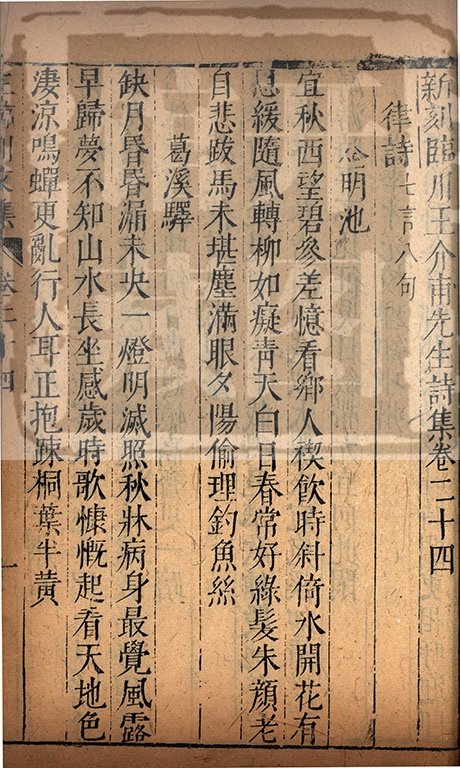 新刻臨川王介甫先生詩集卷二十四
律詩七言八句
金明池
宜秋西望碧參差憶看鄉人禊飲時斜倚水開花有
思緩隨風轉柳如癡靑天白日春常好綠髮朱顏老
自悲跋馬未堪塵滿眼夕陽偷理釣魚絲
葛溪驛
缺月昏昏漏未央一燈明滅照秋牀病身最覺風露
早歸夢不知山水長坐感歲時歌慷慨起看天地色
淒涼鳴蟬更亂行人耳正抱疎桐葉半黃
王臨川文集 卷二十四 一